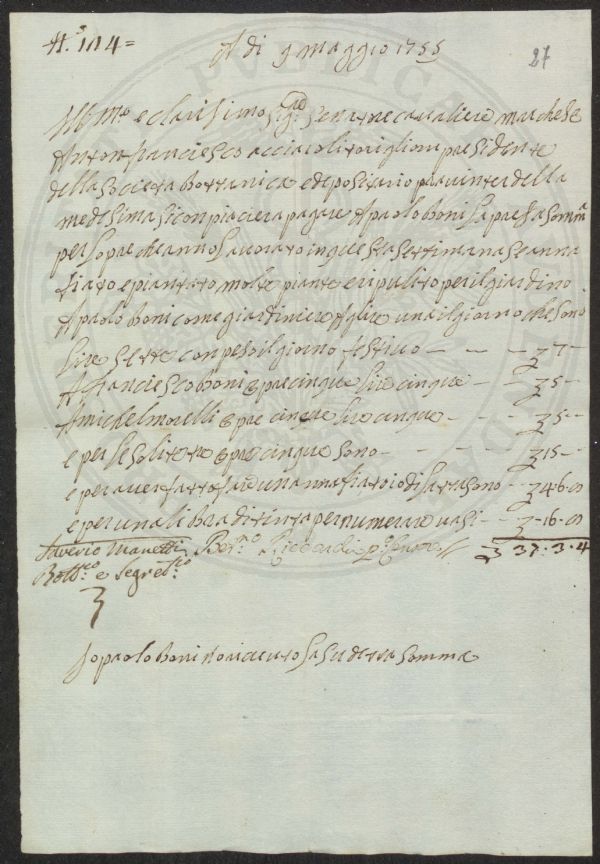 N.º 104 =
A di 9 maggio 1755
27
Ill.mo e clarisimo Sig.re Senatore cavaliere marchese
Anton franciesco acciaioli toriglioni presidente
della Societa bottanica e depositario
medesima si conpiacera pagare A paolo boni la presa Somma
per lopre che anno lavorato in questa settimana Se anna
fiato e piantato molte piante e ripulito per il giardino
A paolo boni come giardiniere A lire una il giorno che sono
lire Sette conpreso il giorno festivo - - - - 7 -
A franciescoboni opre cinque lire cinque - - 5 -
A michel morelli opre cinque lire cinque - - - 5 -
e per le Solite tre opre cinque Sono - - - - - 15 -
e per aver fatto fare uno annafiatoio di latta Sono - - 4.6.8
e per una libra di tinta per numerare i vasi - - -.16.8
Saverio Manetti
Bott.co e Segret.rio
Riccardi
37.3.4
Io paolo boni ho ricieuto la su detta Somma